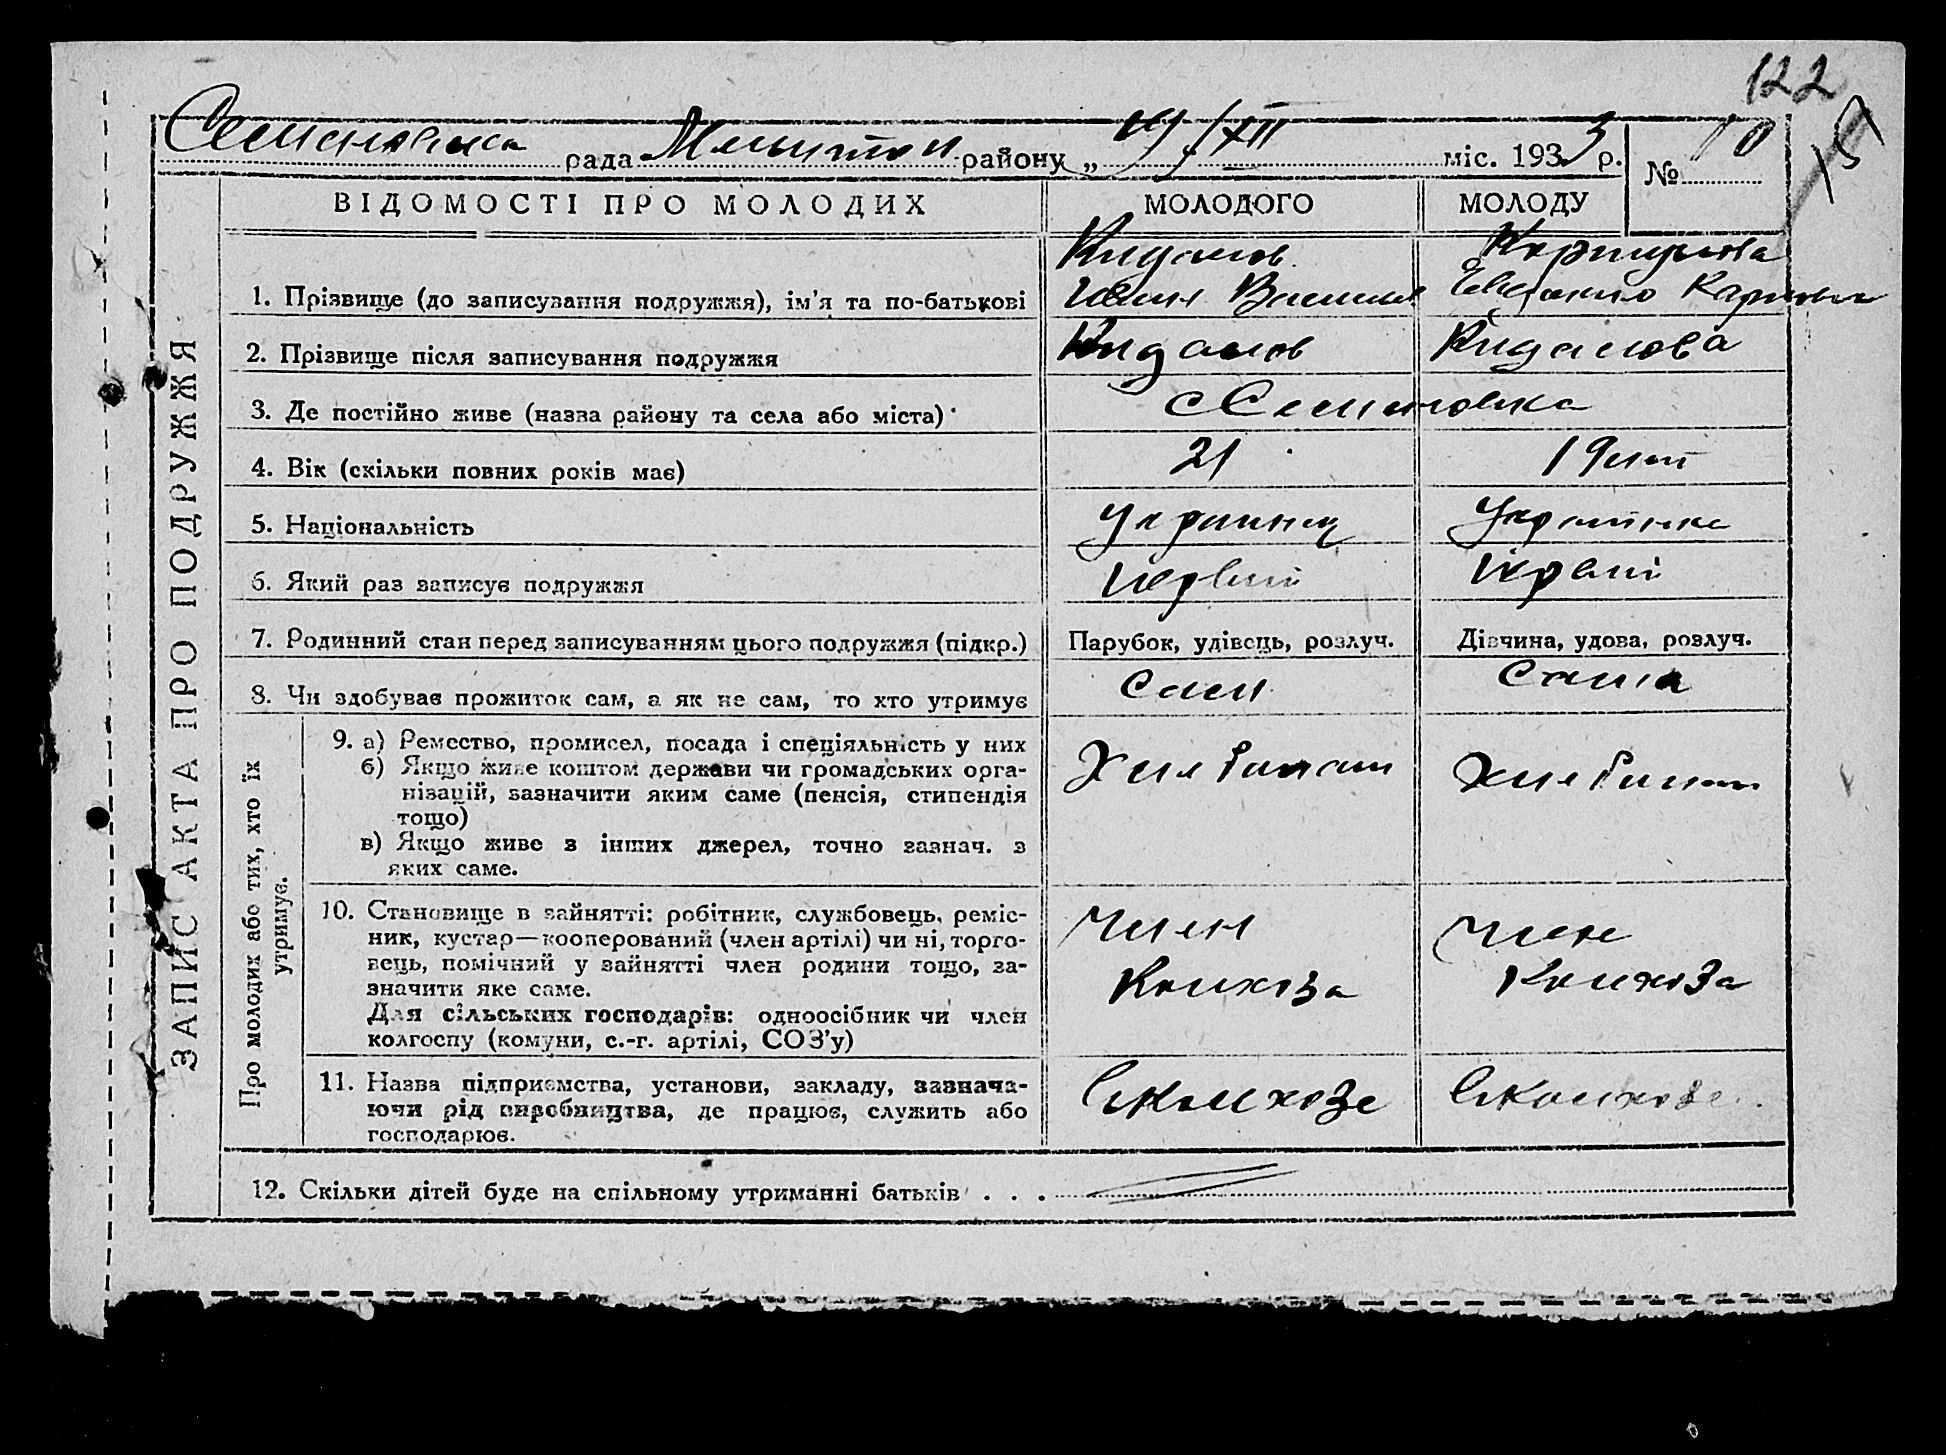 122
15
Семеновка рада Мелитоп району „ 19/XII міс. 1933 р. № 10
ЗАПИС АКТА ПРО ПОДРУЖЖЯ
ВІДОМОСТІ ПРО МОЛОДИХ МОЛОДОГО МОЛОДУ
1. Прізвище (до записування подружжя), ім’я та по-батькові
2. Прізвище після записування подружжя Кидалов Кидалова
3. Де постійно живе (назва району та села або міста) с Семеновка
4. Вік (скільки повних років має) 21 19 лет
5. Національність Украинец Украинка
6. Який раз записує подружжя первий первий
7. Родинний стан перед записуванням цього подружжя (підкр.) Парубок, удівець, розлуч. Дівчина, удова, розлуч.
8. Чи здобуває прожиток сам, а як не сам, то хто утримує сам сама
Про молодих або тих, хто їх
утримує.
9. а) Ремество, промисел, посада і спеціяльність у них
б) Якщо живе коштом держави чи громадських орга-
нізацій, зазначити яким саме (пенсія, стипендія
тощо)
в) Якщо живе з інших джерел, точно зазнач. з
яких саме.
Хлебопаш Хлебопаш
10. Становище в зайнятті: робітник, службовець, реміс-
ник, кустар—кооперований (член артілі) чи ні, торго-
вець, помічний у зайнятті член родини тощо, за-
значити яке саме.
Для сільських господарів: одноосібник чи член
колгоспу (комуни, с.-г. артілі, СОЗ’у)
Член Член
Колхоза Колхоза
11. Назва підприємства, установи, закладу, зазнача-
ючи рід виробництва, де працює, служить або
господарює.
в колхозе в колхозе
12. Скільки дітей буде на спільному утриманні батьків . . .